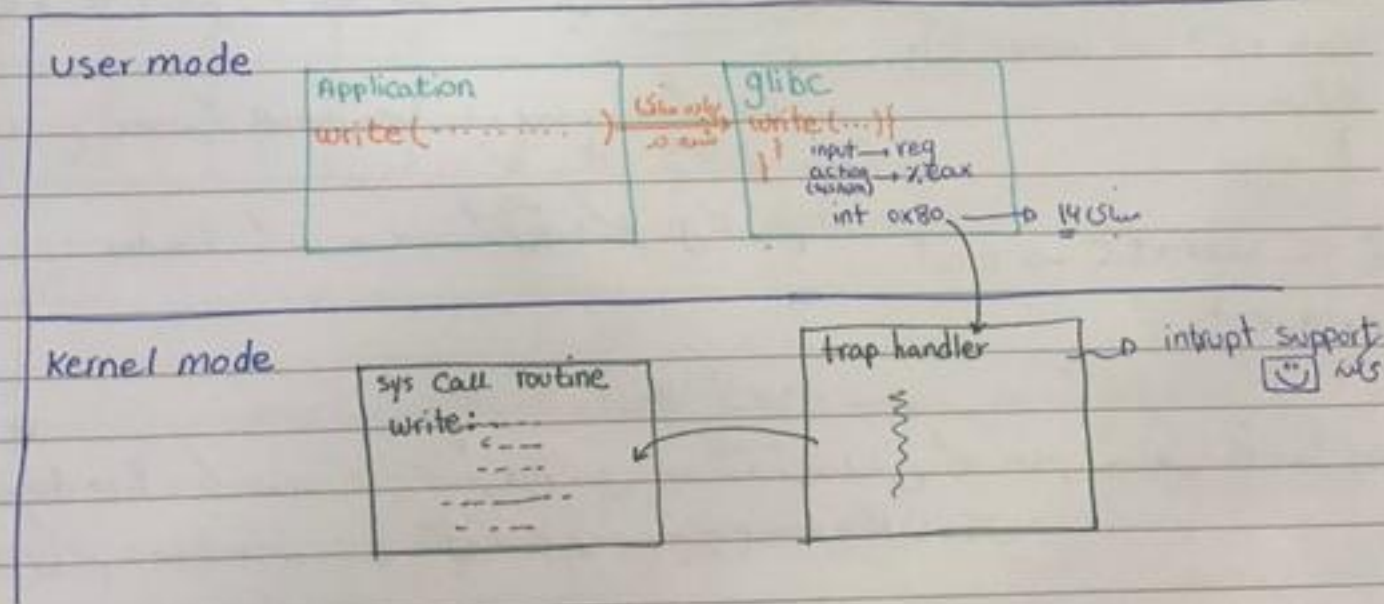 user mode
Application
write( ............ )
glibc
write(...){
}
input → reg
action → %eax
int 0x80
14
Kernel mode
sys Call routine
write:
trap handler
intrupt support